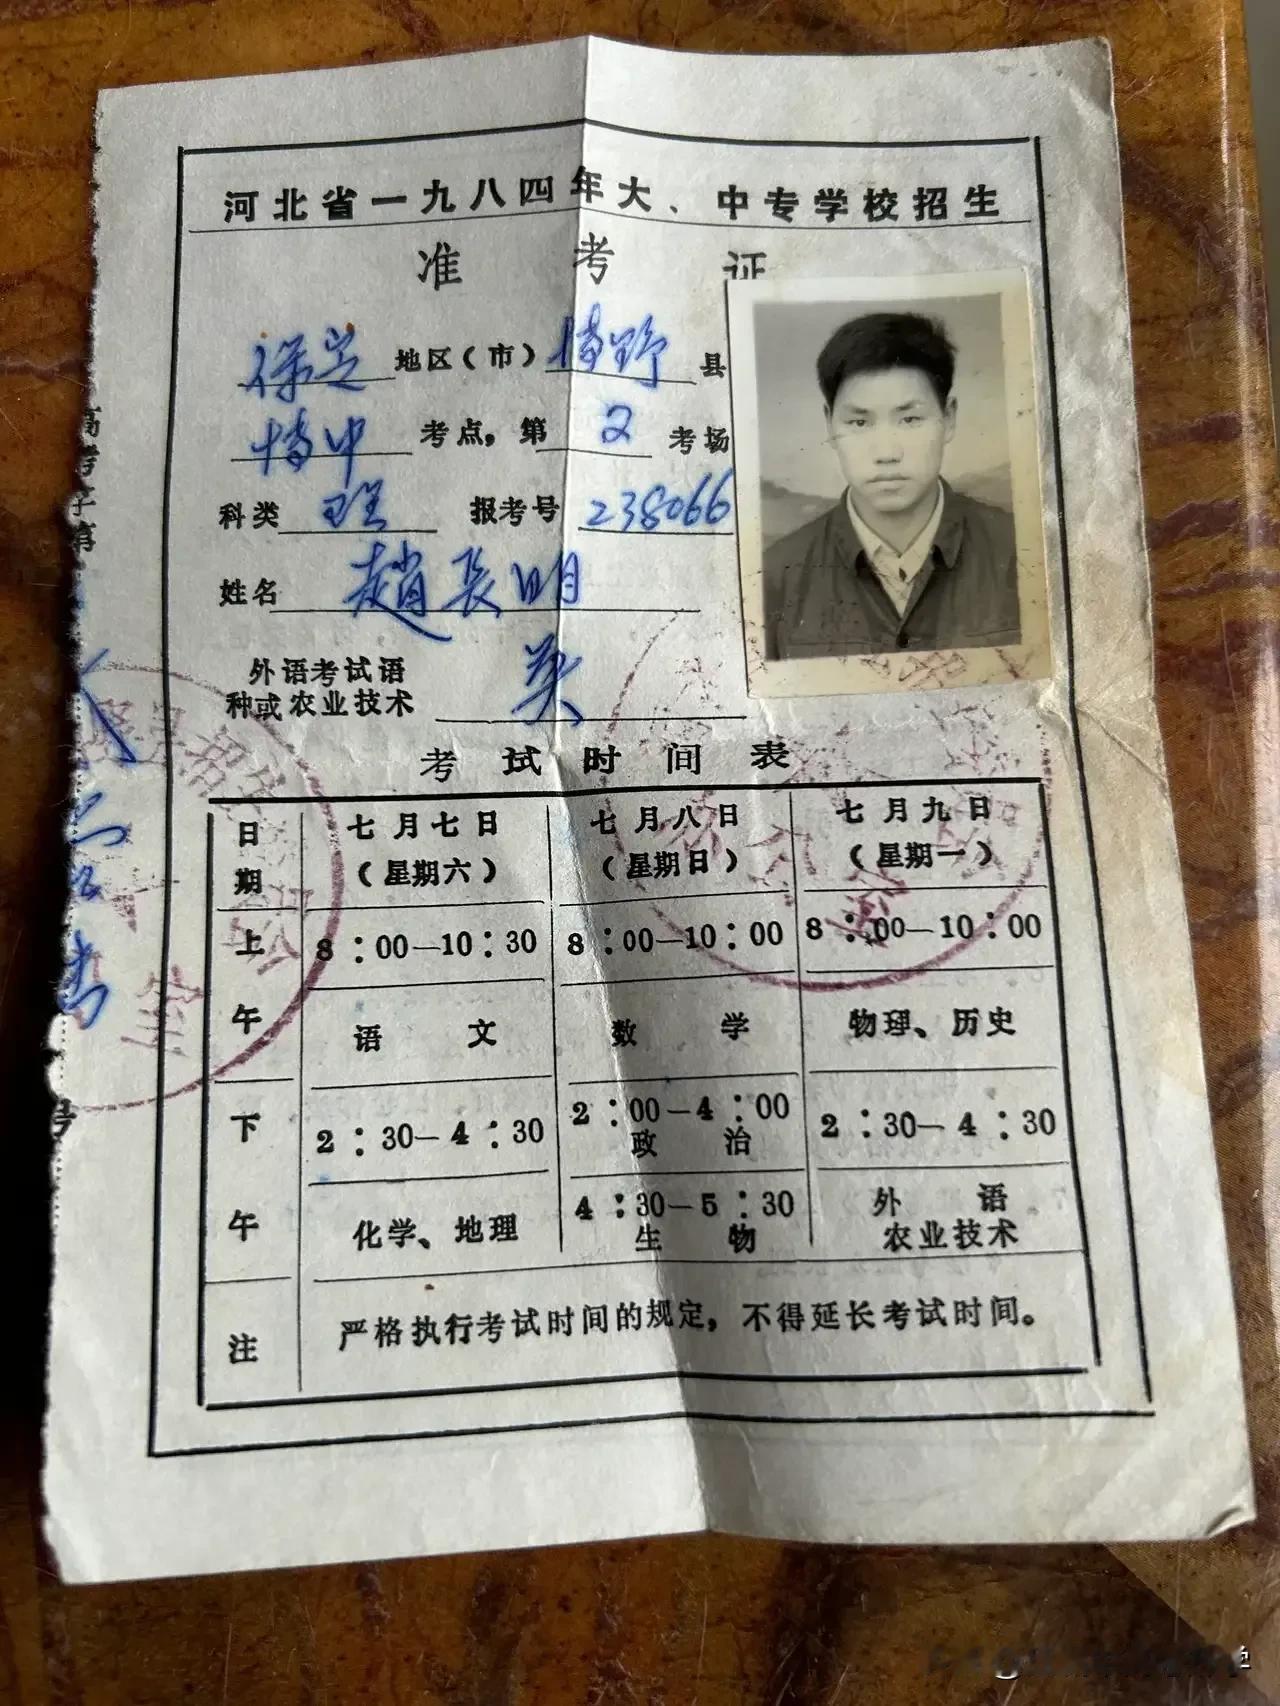 河北省一九八四年大、中专学校招生
准考证
保定地区（市）博野县
博中考点，第2考场
科类 理 报考号 238066
姓名 趙长明
外语考试语种或农业技术 英
考试时间表
日期 七月七日（星期六） 七月八日（星期日） 七月九日（星期一）
上午 8：00—10：30 8：00—10：00 8：00—10：00
语文 数学 物理、历史
下午 2：30—4：30 2：00—4：00 政治 2：30—4：30
化学、地理 4：30—5：30 生物 外语 农业技术
注 严格执行考试时间的规定，不得延长考试时间。
高考字第
号